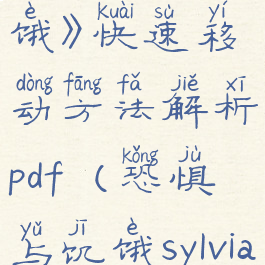 è
饿》快速移
kuài sù yí
动方法解析
dòng fāng fǎ jiě xī
pdf（恐惧
kǒng jù
与饥饿sylvia
yǔ jī è